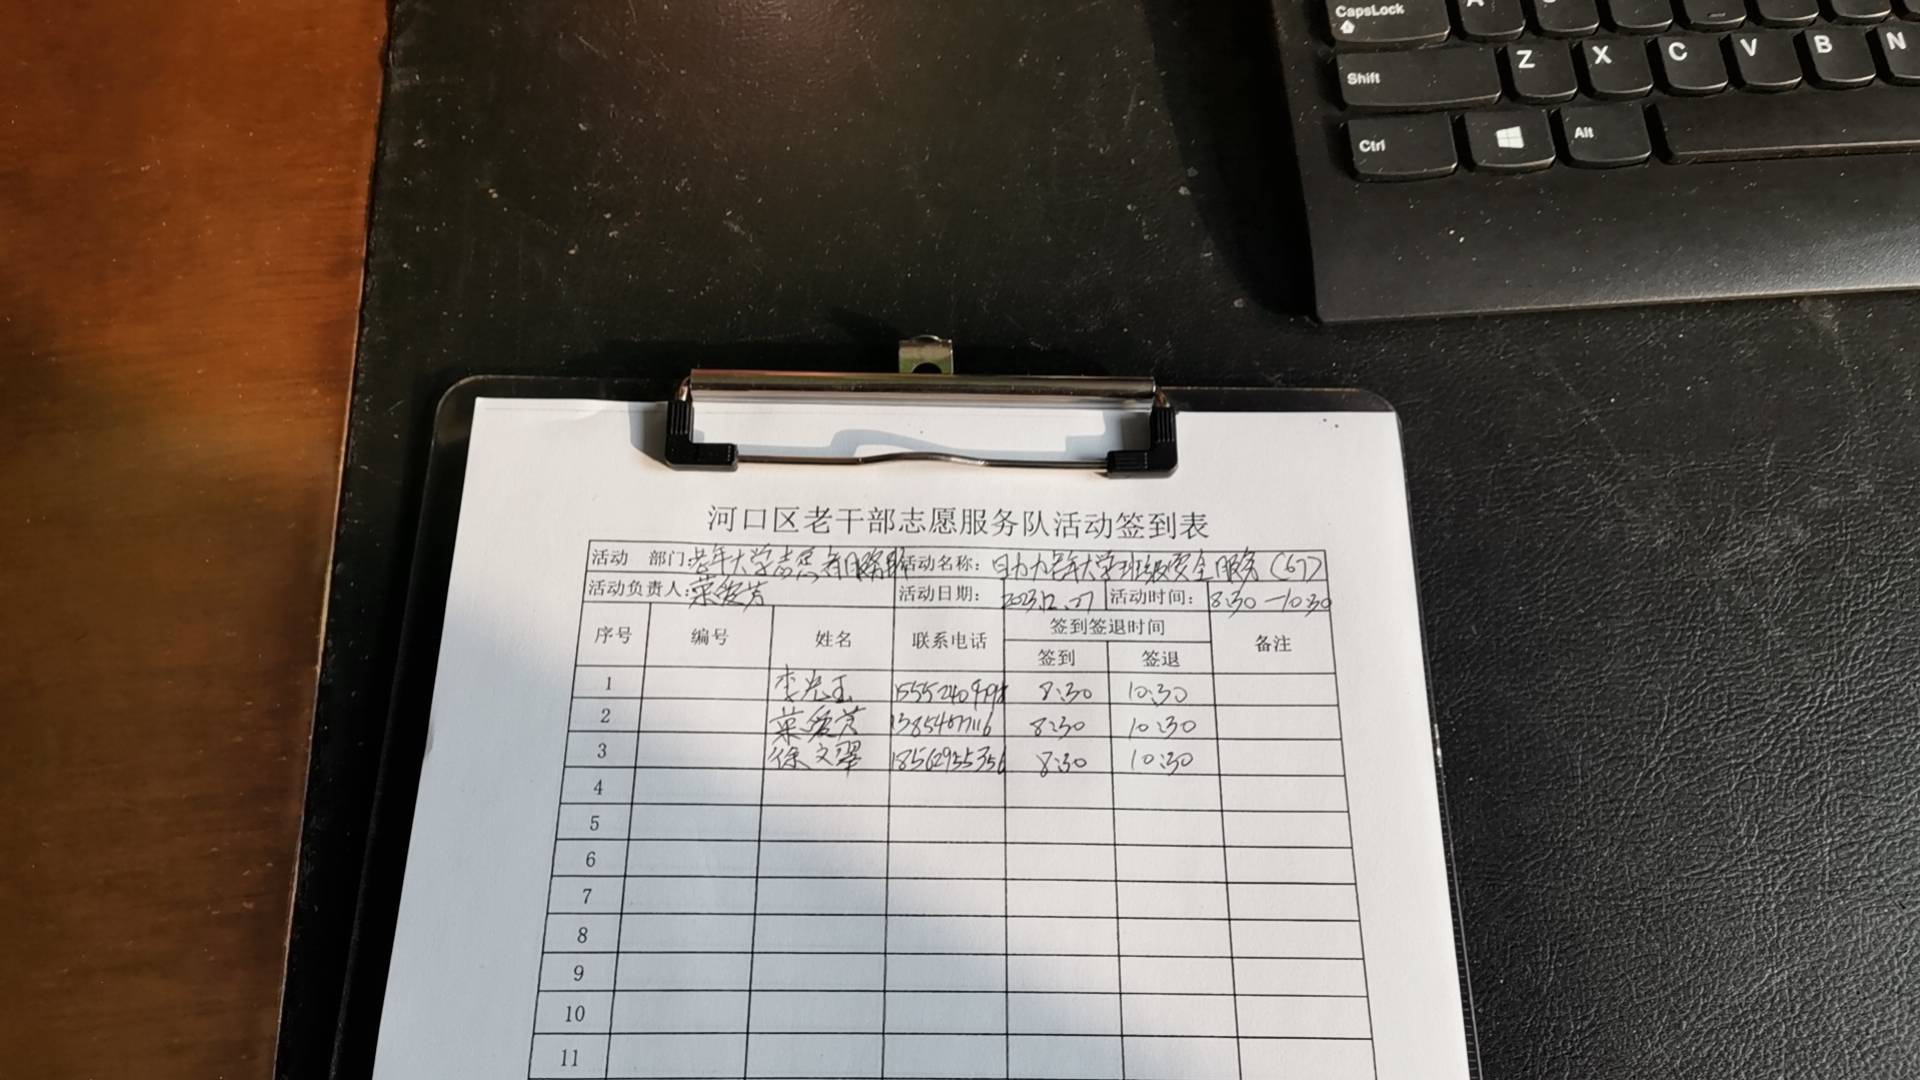 CapsLock A
Shift Z X C V B N
Ctrl Alt
河口区老干部志愿服务队活动签到表
活动 部门: 老年大学志愿者服务队 活动名称: 助力老年大学班级安全服务(57)
活动负责人: 荣爱芳 活动日期: 2023.12.07 活动时间: 8:30-10:30
序号 编号 姓名 联系电话 签到签退时间 备注
签到 签退
1 李光玉 8:30 10:30
2 荣爱芳 8:30 10:30
3 徐文翠 18562955356 8:30 10:30
4
5
6
7
8
9
10
11